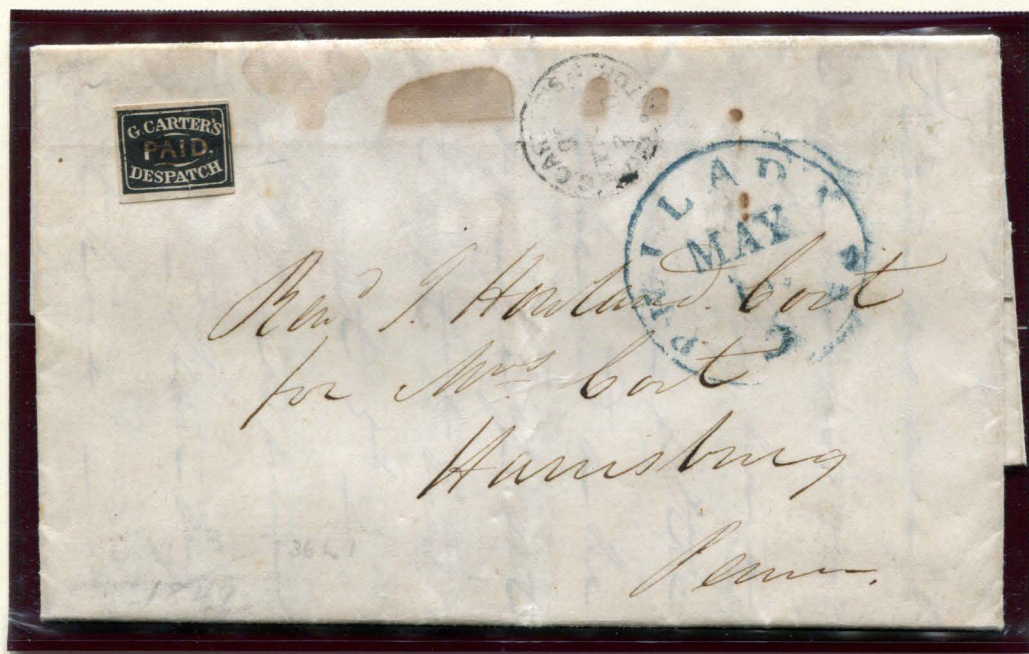 G. CARTER'S
PAID.
DESPATCH
PHILADA
MAY
5
Revd J. Howland. Coit
for Mrs Coit
Harrisburg
Penna.